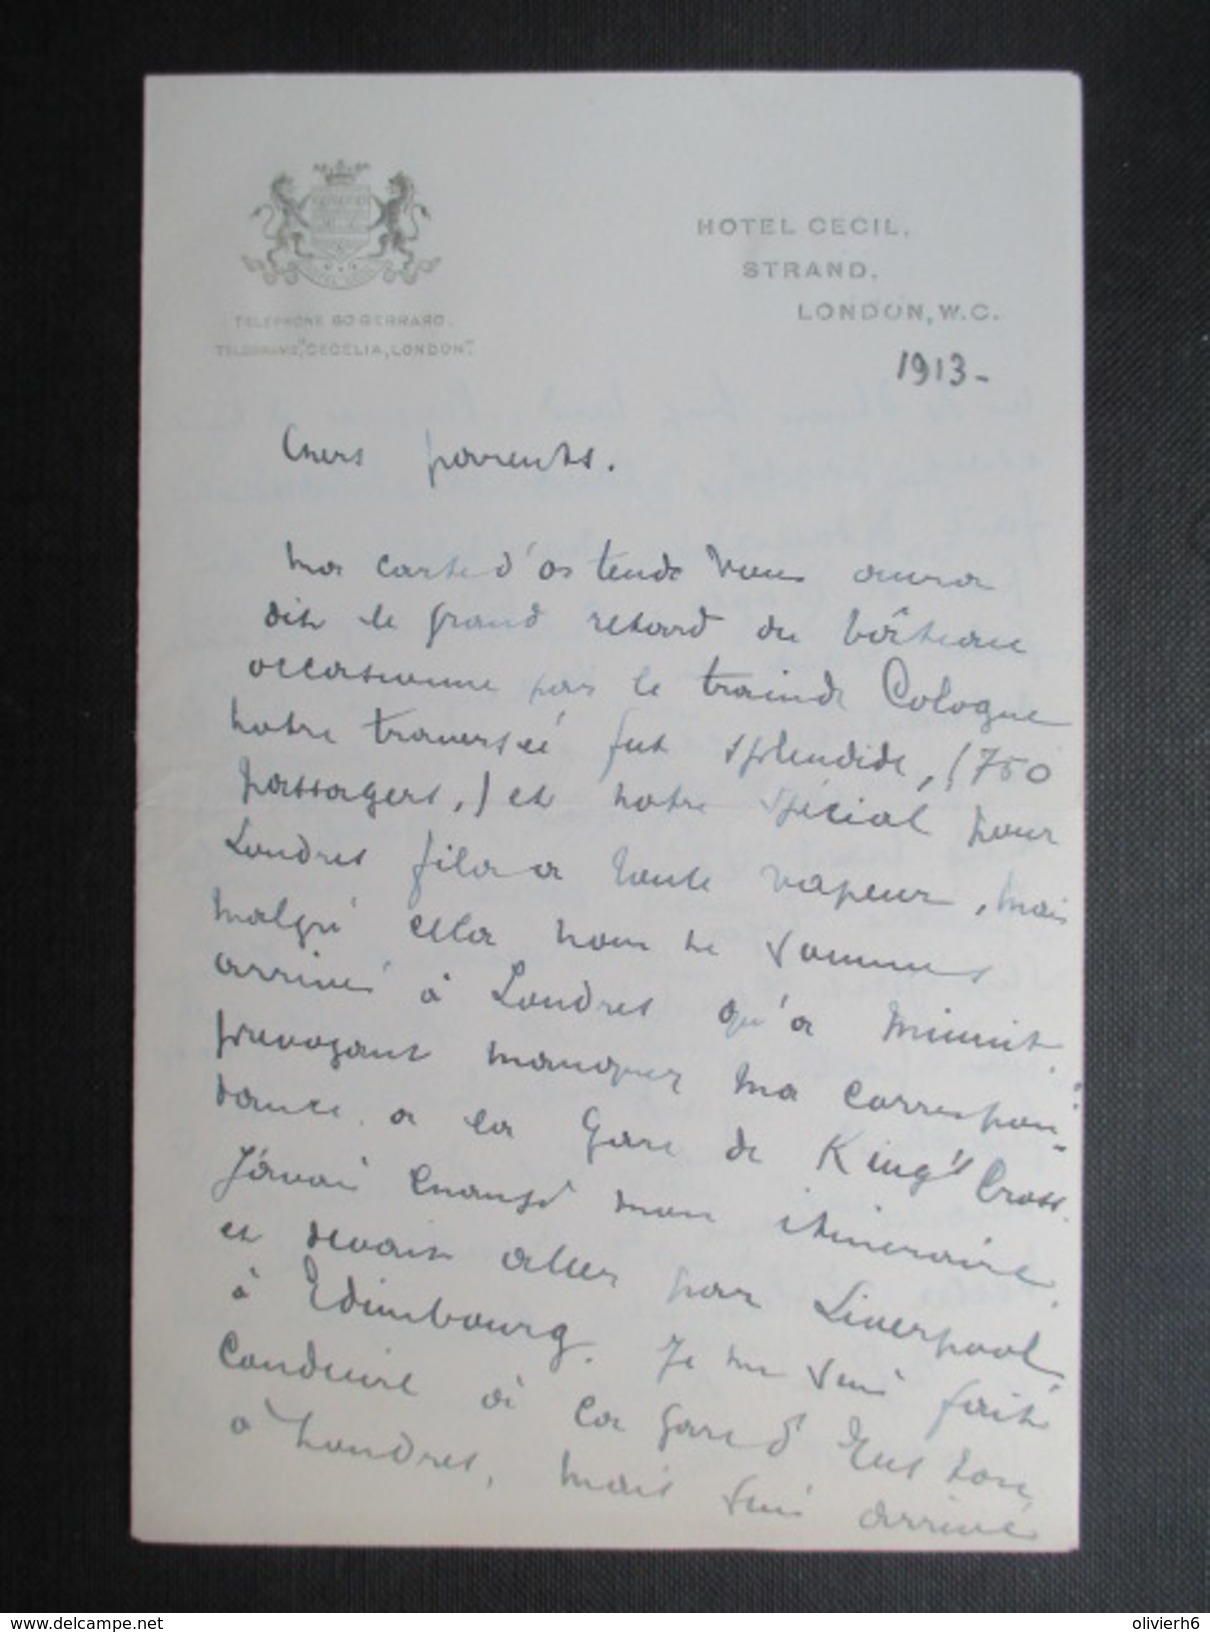 HOTEL CECIL,
STRAND,
LONDON, W.C.
TELEPHONE 60 GERRARD.
TELEGRAMS, "CECELIA, LONDON".
1913-
Chers parents.
Ma carte d'Ostende vous aura
dit le grand retard du bâteau
occasionne par le train de Cologne
notre traversée fut splendide, (750
passagers,) et notre spécial pour
Londres fila a toute vapeur, mais
malgré cela nous ne sommes
arrivés à Londres qu'a Minuit.
prevoyant manquer ma correspon-
dance a la Gare de King's Cross.
J'avai changé mon itineraire
et devait aller par Liverpool
à Edimbourg. Je me suis fait
conduire à la gare d'Euston
à Londres, mais suis arrivé
www.delcampe.net
olivierh6